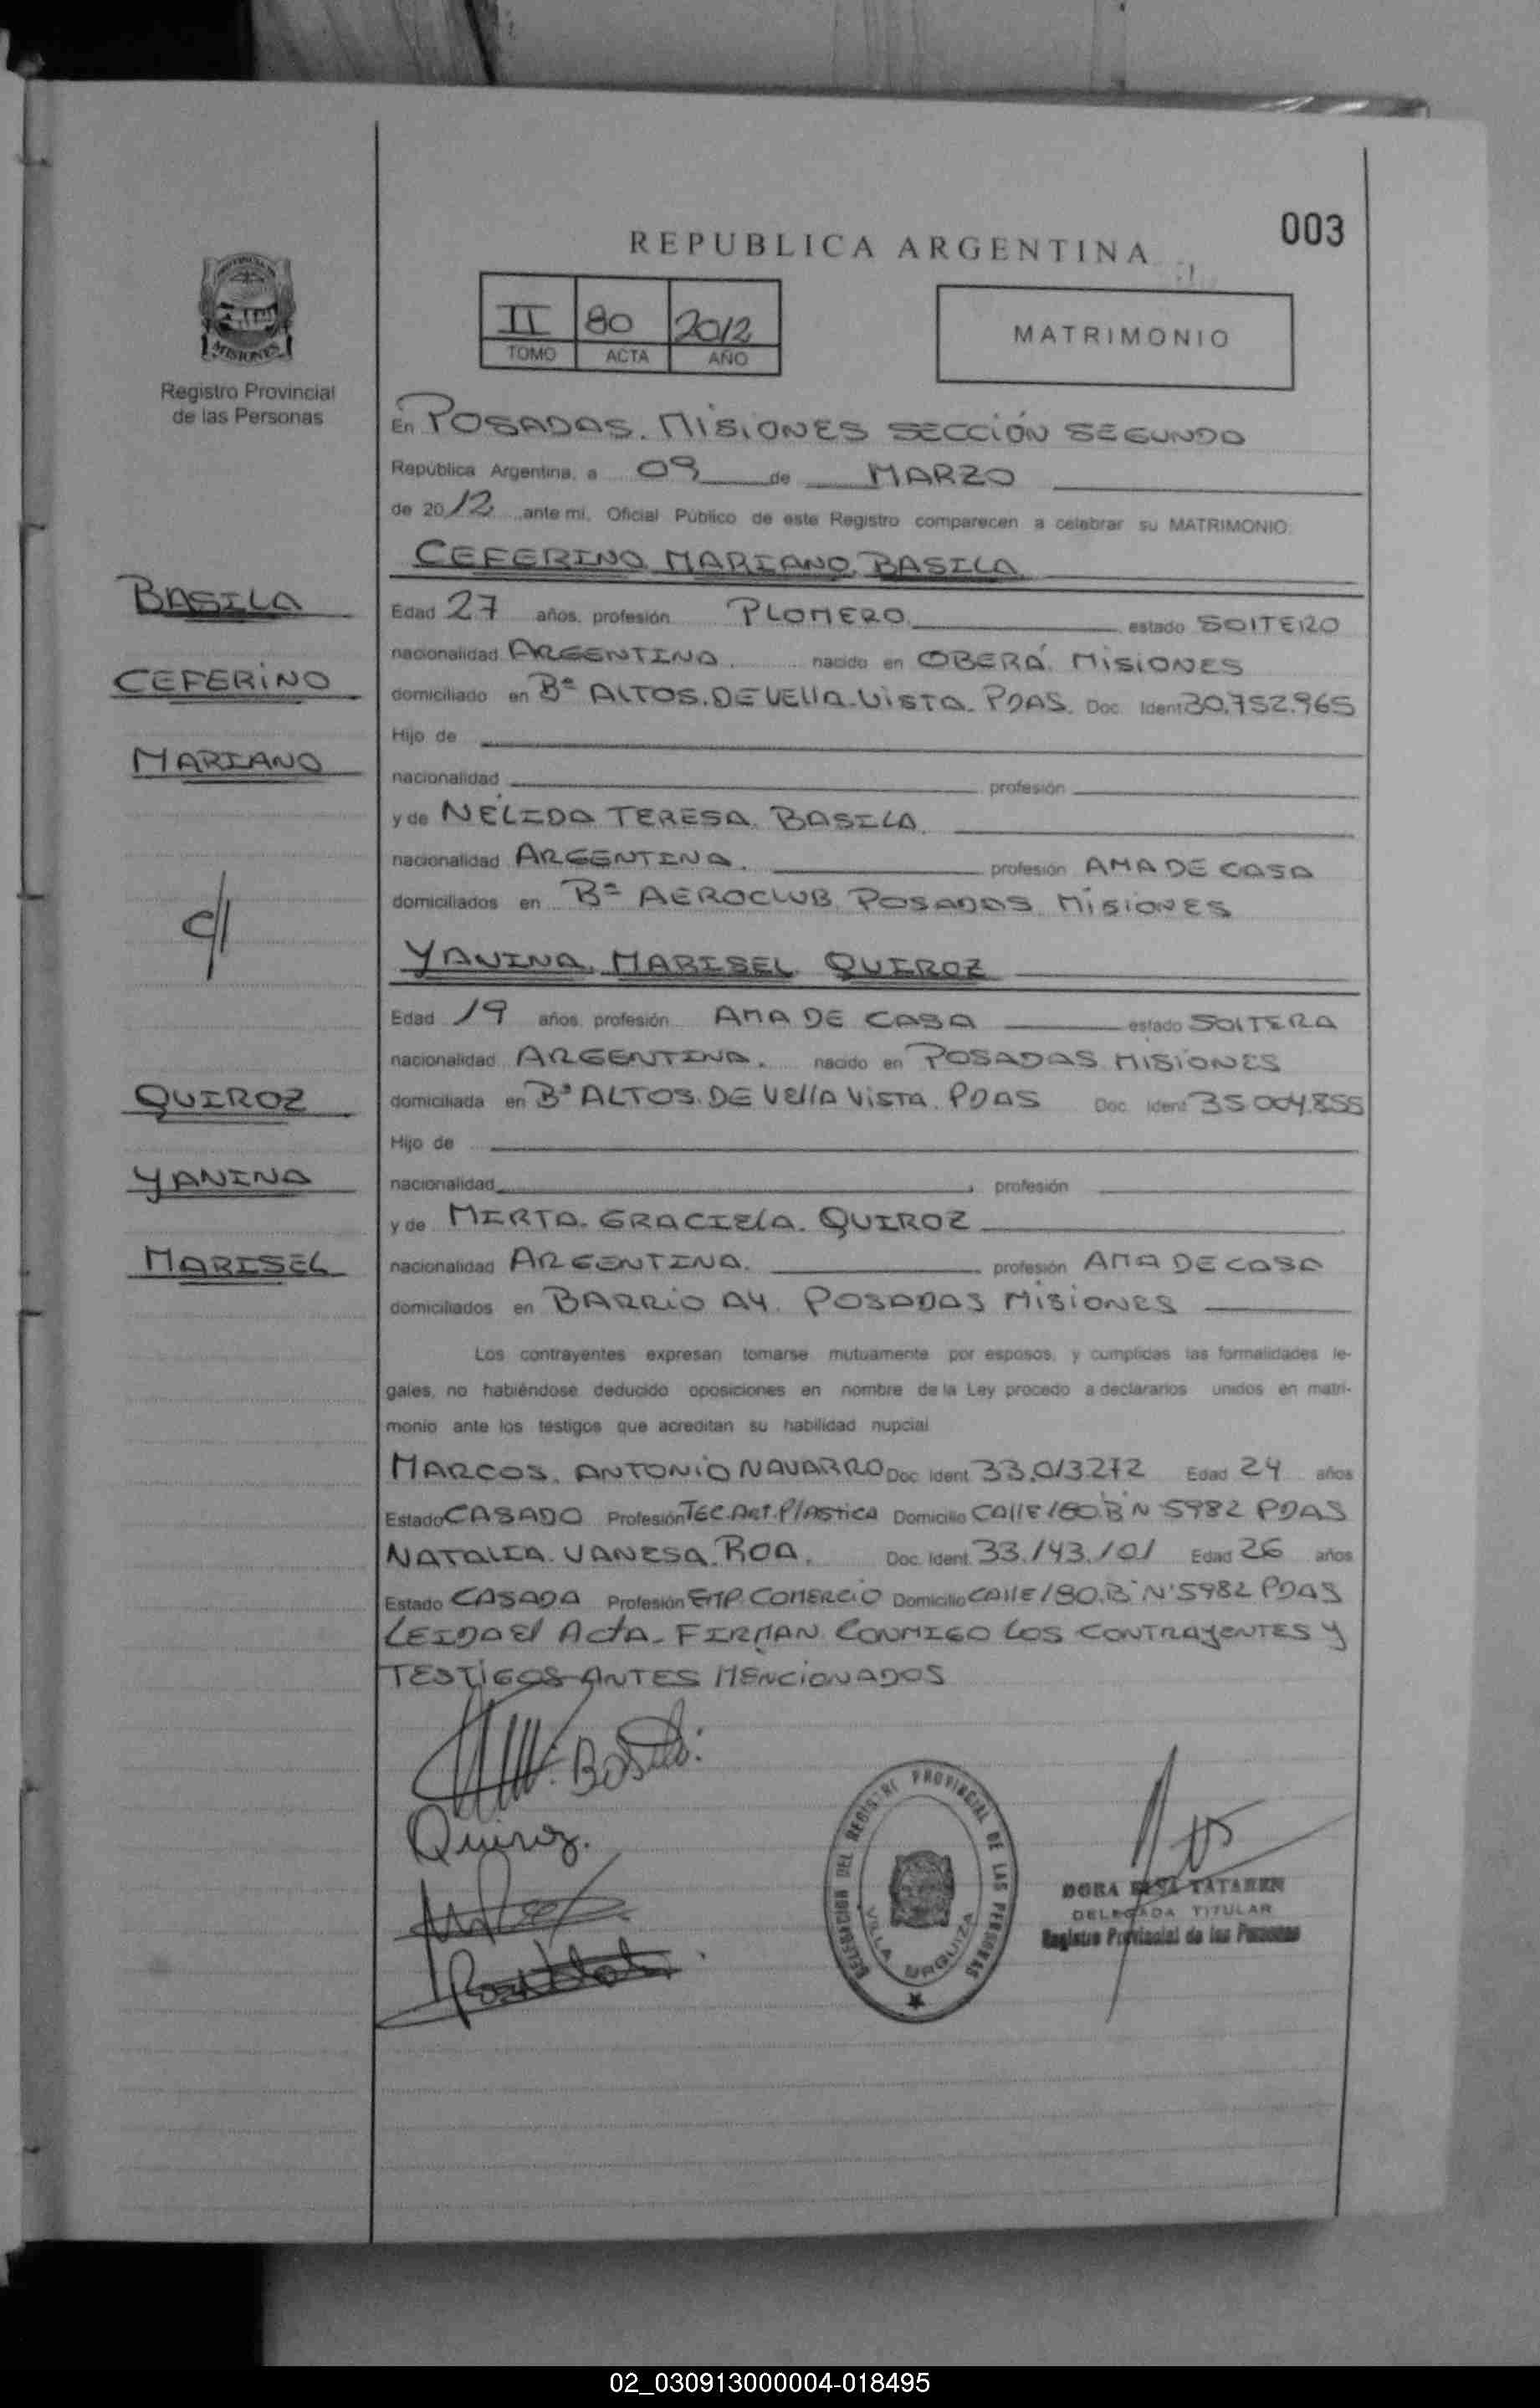 003
REPUBLICA ARGENTINA
II 80 2012
TOMO ACTA AÑO
MATRIMONIO
MISIONES
Registro Provincial
de las Personas
En POSADAS. MISIONES SECCIÓN SEGUNDA
República Argentina, a 09 de MARZO
de 2012 ante mí, Oficial Público de este Registro comparecen a celebrar su MATRIMONIO:
CEFERINO MARIANO BASILA
BASILA
Edad 27 años, profesión PLOMERO estado SOLTERO
nacionalidad ARGENTINA. nacido en OBERÁ. MISIONES
CEFERINO
domiciliado en Bº ALTOS. DE VELLA. VISTA. PDAS. Doc. Ident 30.752.965
Hijo de
MARIANO
nacionalidad profesión
y de NÉLIDA TERESA. BASILA.
nacionalidad ARGENTINA. profesión AMA DE CASA
domiciliados en Bº AEROCLUB POSADAS MISIONES
C/
YANINA. MARISEL QUIROZ
Edad 19 años, profesión AMA DE CASA estado SOLTERA
nacionalidad ARGENTINA. nacido en POSADAS MISIONES
QUIROZ
domiciliada en Bº ALTOS. DE VELLA VISTA. PDAS Doc. Ident 35.004.855
Hijo de
YANINA
nacionalidad profesión
y de MIRTA. GRACIELA. QUIROZ
MARISEL
nacionalidad ARGENTINA. profesión AMA DE CASA
domiciliados en BARRIO A4. POSADAS MISIONES
Los contrayentes expresan tomarse mutuamente por esposos, y cumplidas las formalidades le-
gales, no habiéndose deducido oposiciones en nombre de la Ley procedo a declararlos unidos en matri-
monio ante los testigos que acreditan su habilidad nupcial
MARCOS. ANTONIO NAVARRO Doc. Ident 33.013272 Edad 24 años
Estado CASADO Profesión TEC. Art. Plastica Domicilio CALLE 180.B N 5982 PDAS
NATALIA. VANESA. ROA. Doc. Ident. 33.143.101 Edad 26 años
Estado CASADA Profesión EMP. COMERCIO Domicilio CALLE 180.B Nº5982 PDAS
LEIDA El ActA. FIRMAN CONMIGO LOS CONTRAYENTES Y
TESTIGOS ANTES MENCIONADOS
Basila
Quiroz.
DELEGACION DEL REGISTRO PROVINCIAL DE LAS PERSONAS
VILLA URQUIZA
DORA TATAREN
DELEGADA TITULAR
Registro Provincial de las Personas
02_030913000004-018495